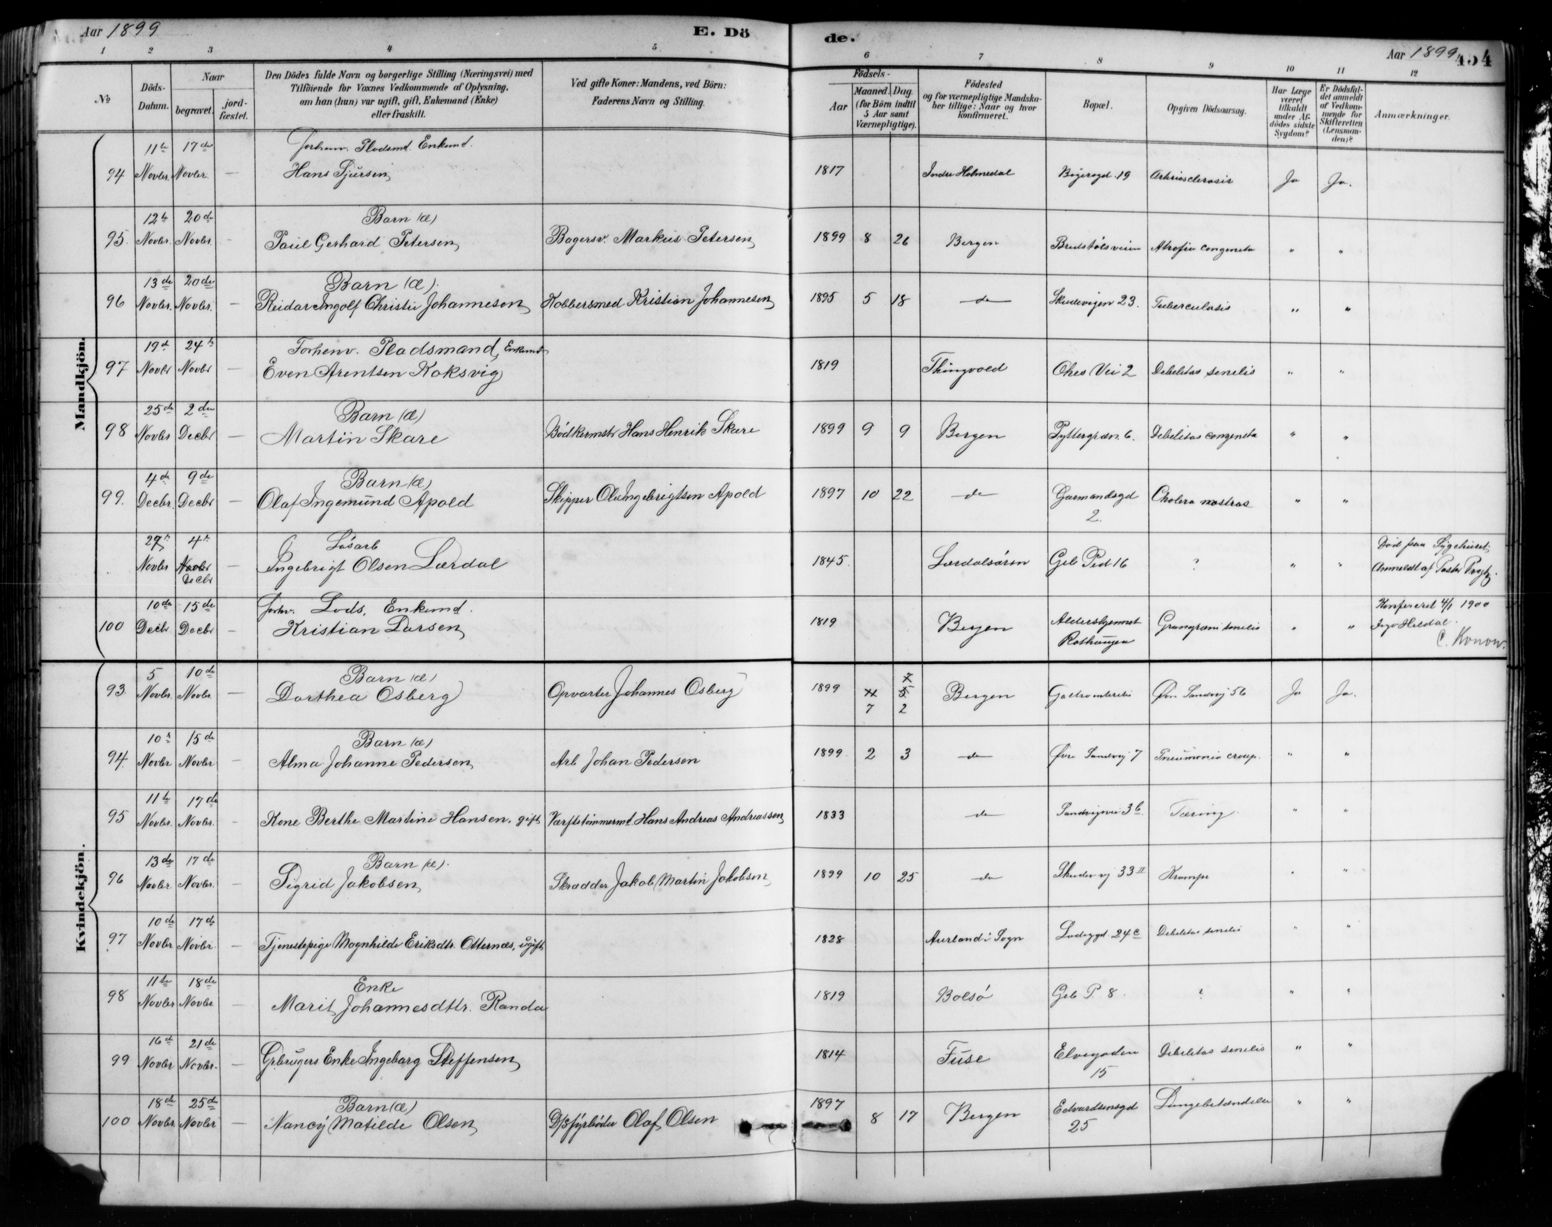 Aar 1899
E. Dö
de.
Aar 1899
454
1 2 3 4 5 6 7 8 9 10 11 12
№
Döds-Datum.
Naar
begravet.
jord-fæstet.
Den Dödes fulde Navn og borgerlige Stilling (Næringsvei) med
Tilföiende for Voxnes Vedkommende af Oplysning,
om han (hun) var ugift, gift, Enkemand (Enke)
eller fraskilt.
Ved gifte Koner: Mandens, ved Börn:
Faderens Navn og Stilling.
Födsels-
Aar
Maaned. Dag.
(for Börn indtil
5 Aar samt
Værnepligtige).
Födested
og for værnepligtige Mandska-
ber tillige: Naar og hvor
konfirmeret.
Bopæl.
Opgiven Dödsaarsag.
Har Læge
været
tilkaldt
under Af-
dödes sidste
Sygdom?
Er Dödsfal-
det anmeldt
af Vedkom-
mende for
Skifteretten
(Lensman-
den)?
Anmærkninger.
Mandkjön.
94 11te Novbr. 17de Novbr. — Forhenv. Pladsmd. Enkemd.
Hans Sjursen 1817 Indre Holmedal 19 Arteriosclerosis Ja Ja.
95. 12te Novbr. 20de Novbr. — Barn (æ)
Paul Gerhard Petersen, Bagersv. Markus Petersen, 1899 8 26 Bergen Atrofia congenita " "
96 13de Novbr. 20de Novbr. — Barn (æ).
Reidar Ingolf Christie Johannesen, Kobbersmed Kristian Johannesen, 1895 5 18 — de — Skudevigen 23. Tuberculosis " "
97 19de Novbr 24de Novbr — Forhenv. Pladsmand, Enkemd
Even Arentsen Koksvig 1819 Thingvold Ohes Vei 2 Debilitas senilis " "
98 25de Novbr 2den Decbr — Barn (æ)
Martin Skare Bödkermstr Hans Henrik Skare 1899 9 9 Bergen 6. Debilitas congenita " "
99. 4de Decbr. 9de Decbr — Barn (æ)
Olaf Ingemund Apold Skipper Ole Ingebrigtsen Apold 1897 10 22 — de — Garmandsgd 2. Cholera nostras " "
27de Novbr 4de Novbr Decbr Lösarb
Ingebrigt Olsen Lærdal 1845. Lærdalsören Geb Ped 16 ? " " Död paa Sygehuset,
Anmeldt af Pastor
100 10de Decbr. 15de Decbr — forhv. Lods, Enkemd.
Kristian Larsen, 1819 Bergen Aldershjemmet
Rothaugen senilis " " Konfereret 4/1 1900
C. Konow.
Kvindekjön.
93 5 Novbr. 10de Novbr. — Barn (æ)
Dorthea Osberg Opvarter Johannes Osberg 1899 7 2 Bergen Øvr. Sandvig 56 Ja Ja.
94. 10de Novbr 15de Novbr — Barn (æ)
Alma Johanne Pedersen, Arb Johan Pedersen 1899. 2 3 — de Øvre Sandvig 7 Pneumonia croup. " "
95 11te Novbr. 17de Novbr. — Kone Berthe Martine Hansen, gift Værftstömmermd. Hans Andreas Andreassen, 1833 — de Sandvigsvei 36 Tæring " "
96 13de Novbr 17de Novbr. — Barn (æ).
Sigrid Jakobsen, Skrædder Jakob Martin Jakobsen, 1899 10 25 — de Skudevig 33 II Krampe " "
97 10de Novbr 17de Novbr. — Tjenestepige Magnhilde Eriksdtr. Otternæs, ugift. 1828 Aurland i Sogn Ladegd 24c Debilitas senilis " "
98 11te Novbr 18de Novbr. — Enke
Marit Johannesdtr. Randa 1819 Bolsö Geb P 8. ? " "
99 16de Novbr 21de Novbr. — Grbrugers Enke Ingeborg Steffensen, 1814 Fuse Elvegaden 15 Debilitas senilis " "
100 18de Novbr 25de Novbr — Barn (æ)
Nancy Matilde Olsen, D/s fyrböder Olaf Olsen 1897 8 17 Bergen Edvardsensgd 25 Lungebetændelse " "